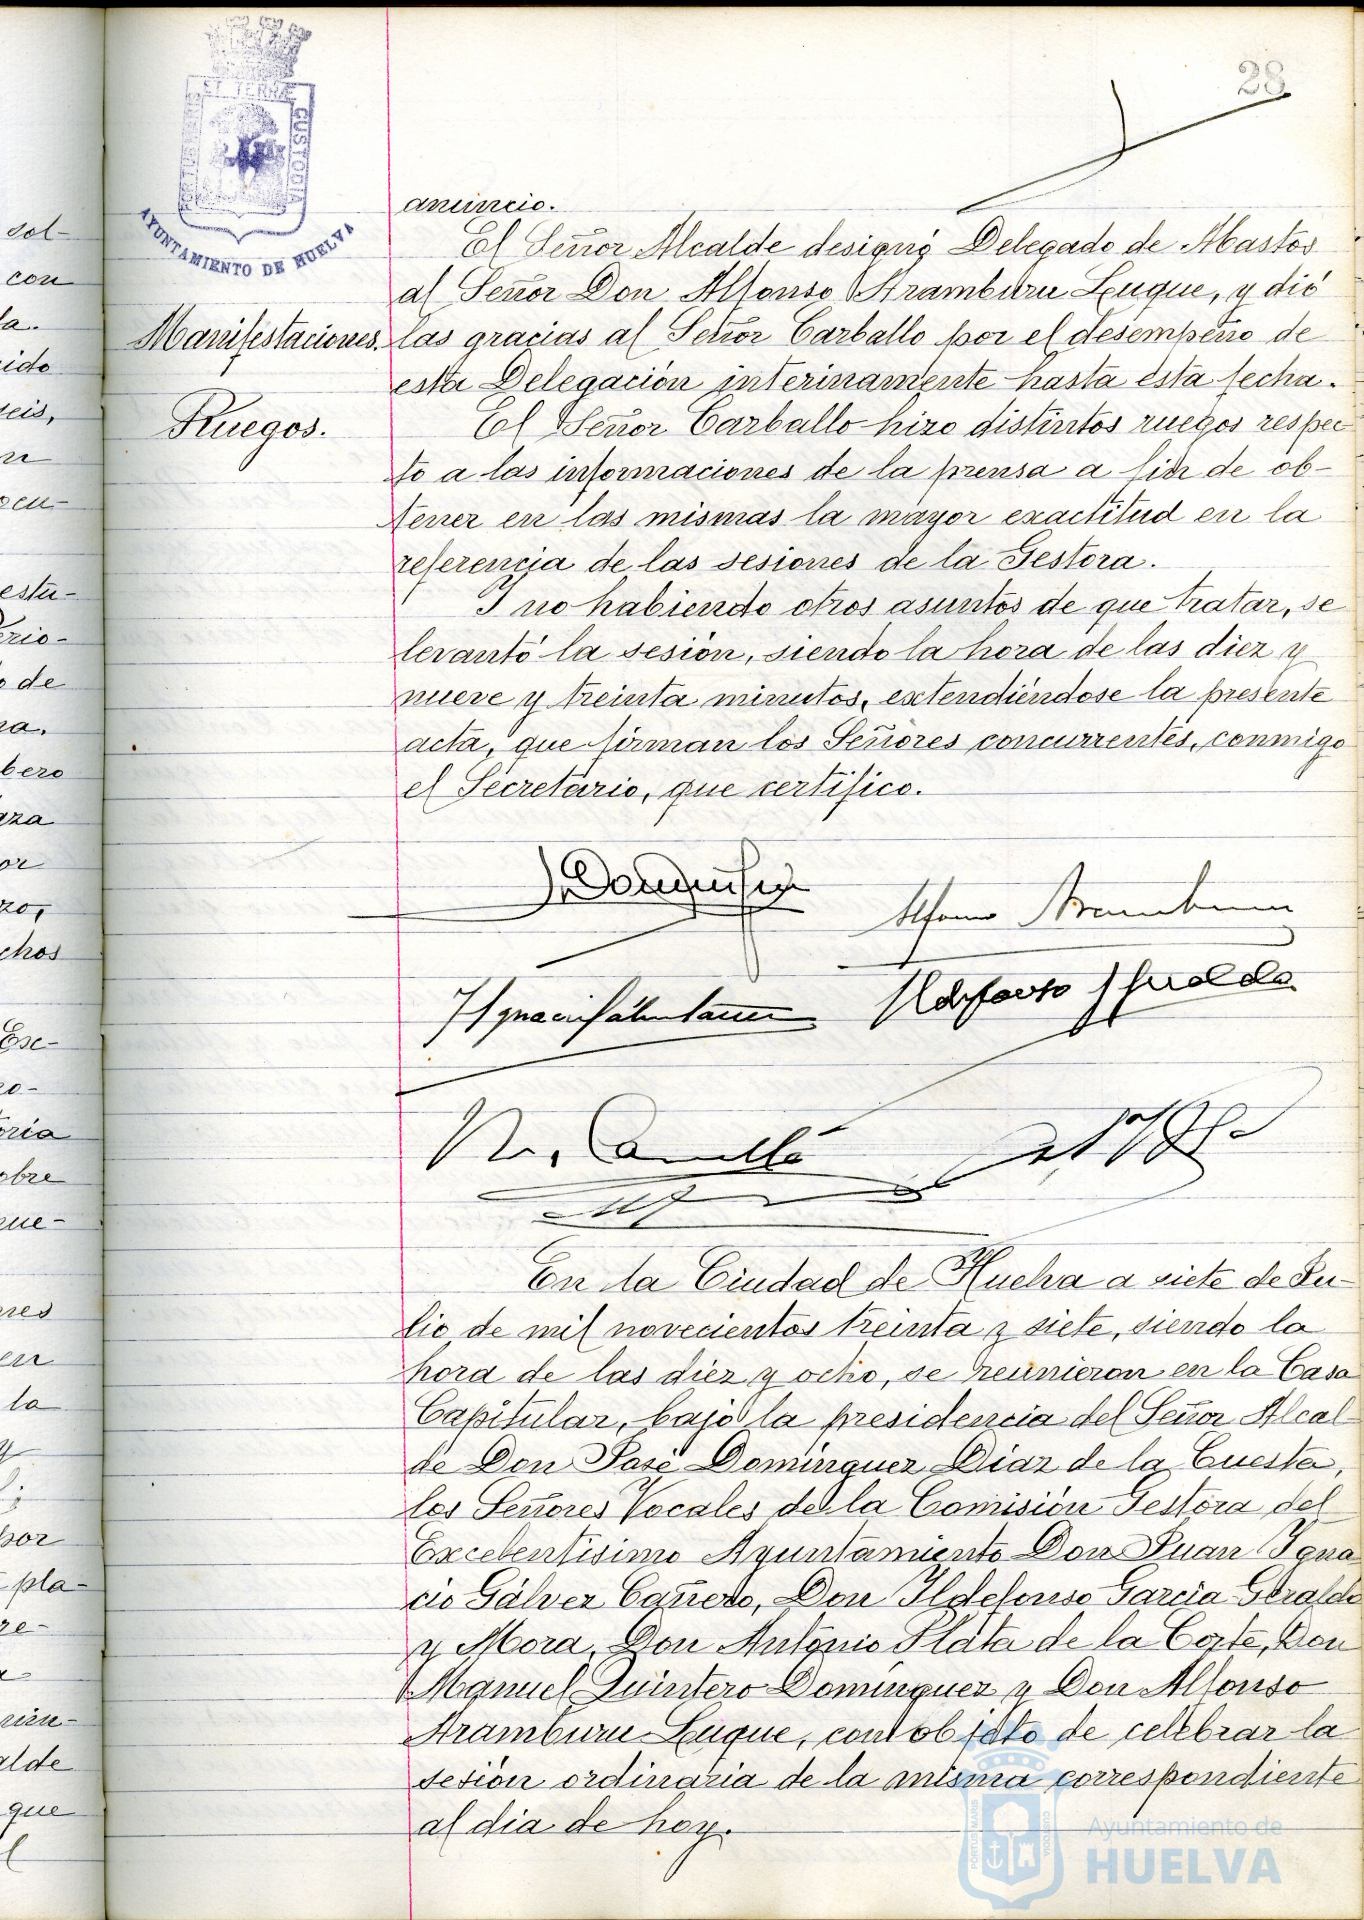 28
PORTUS MARIS ET TERRÆ CUSTODIA
AYUNTAMIENTO DE HUELVA
anuncio.
El Señor Alcalde designó Delegado de Abastos
al Señor Don Alfonso Aramburu Luque, y dió
Manifestaciones. las gracias al Señor Carballo por el desempeño de
esta Delegación interinamente hasta esta fecha.
Ruegos. El Señor Carballo hizo distintos ruegos respec-
to a las informaciones de la prensa a fin de ob-
tener en las mismas la mayor exactitud en la
referencia de las sesiones de la Gestora.
Y no habiendo otros asuntos de que tratar, se
levantó la sesión, siendo la hora de las diez y
nueve y treinta minutos, extendiéndose la presente
acta, que firman los Señores concurrentes, conmigo
el Secretario, que certifico.
Alfonso Aramburu
Ildefonso Gualda
En la Ciudad de Huelva a siete de Ju-
lio de mil novecientos treinta y siete, siendo la
hora de las diez y ocho, se reunieron en la Casa
Capitular, bajo la presidencia del Señor Alcal-
de Don José Domínguez Díaz de la Cuesta,
los Señores Vocales de la Comisión Gestora del
Excelentísimo Ayuntamiento Don Juan Igna-
cio Gálvez Cañero, Don Ildefonso García Geraldo
y Mora, Don Antonio Plata de la Corte, Don
Manuel Quintero Domínguez y Don Alfonso
Aramburu Luque, con objeto de celebrar la
sesión ordinaria de la misma correspondiente
al dia de hoy.
Ayuntamiento de
HUELVA